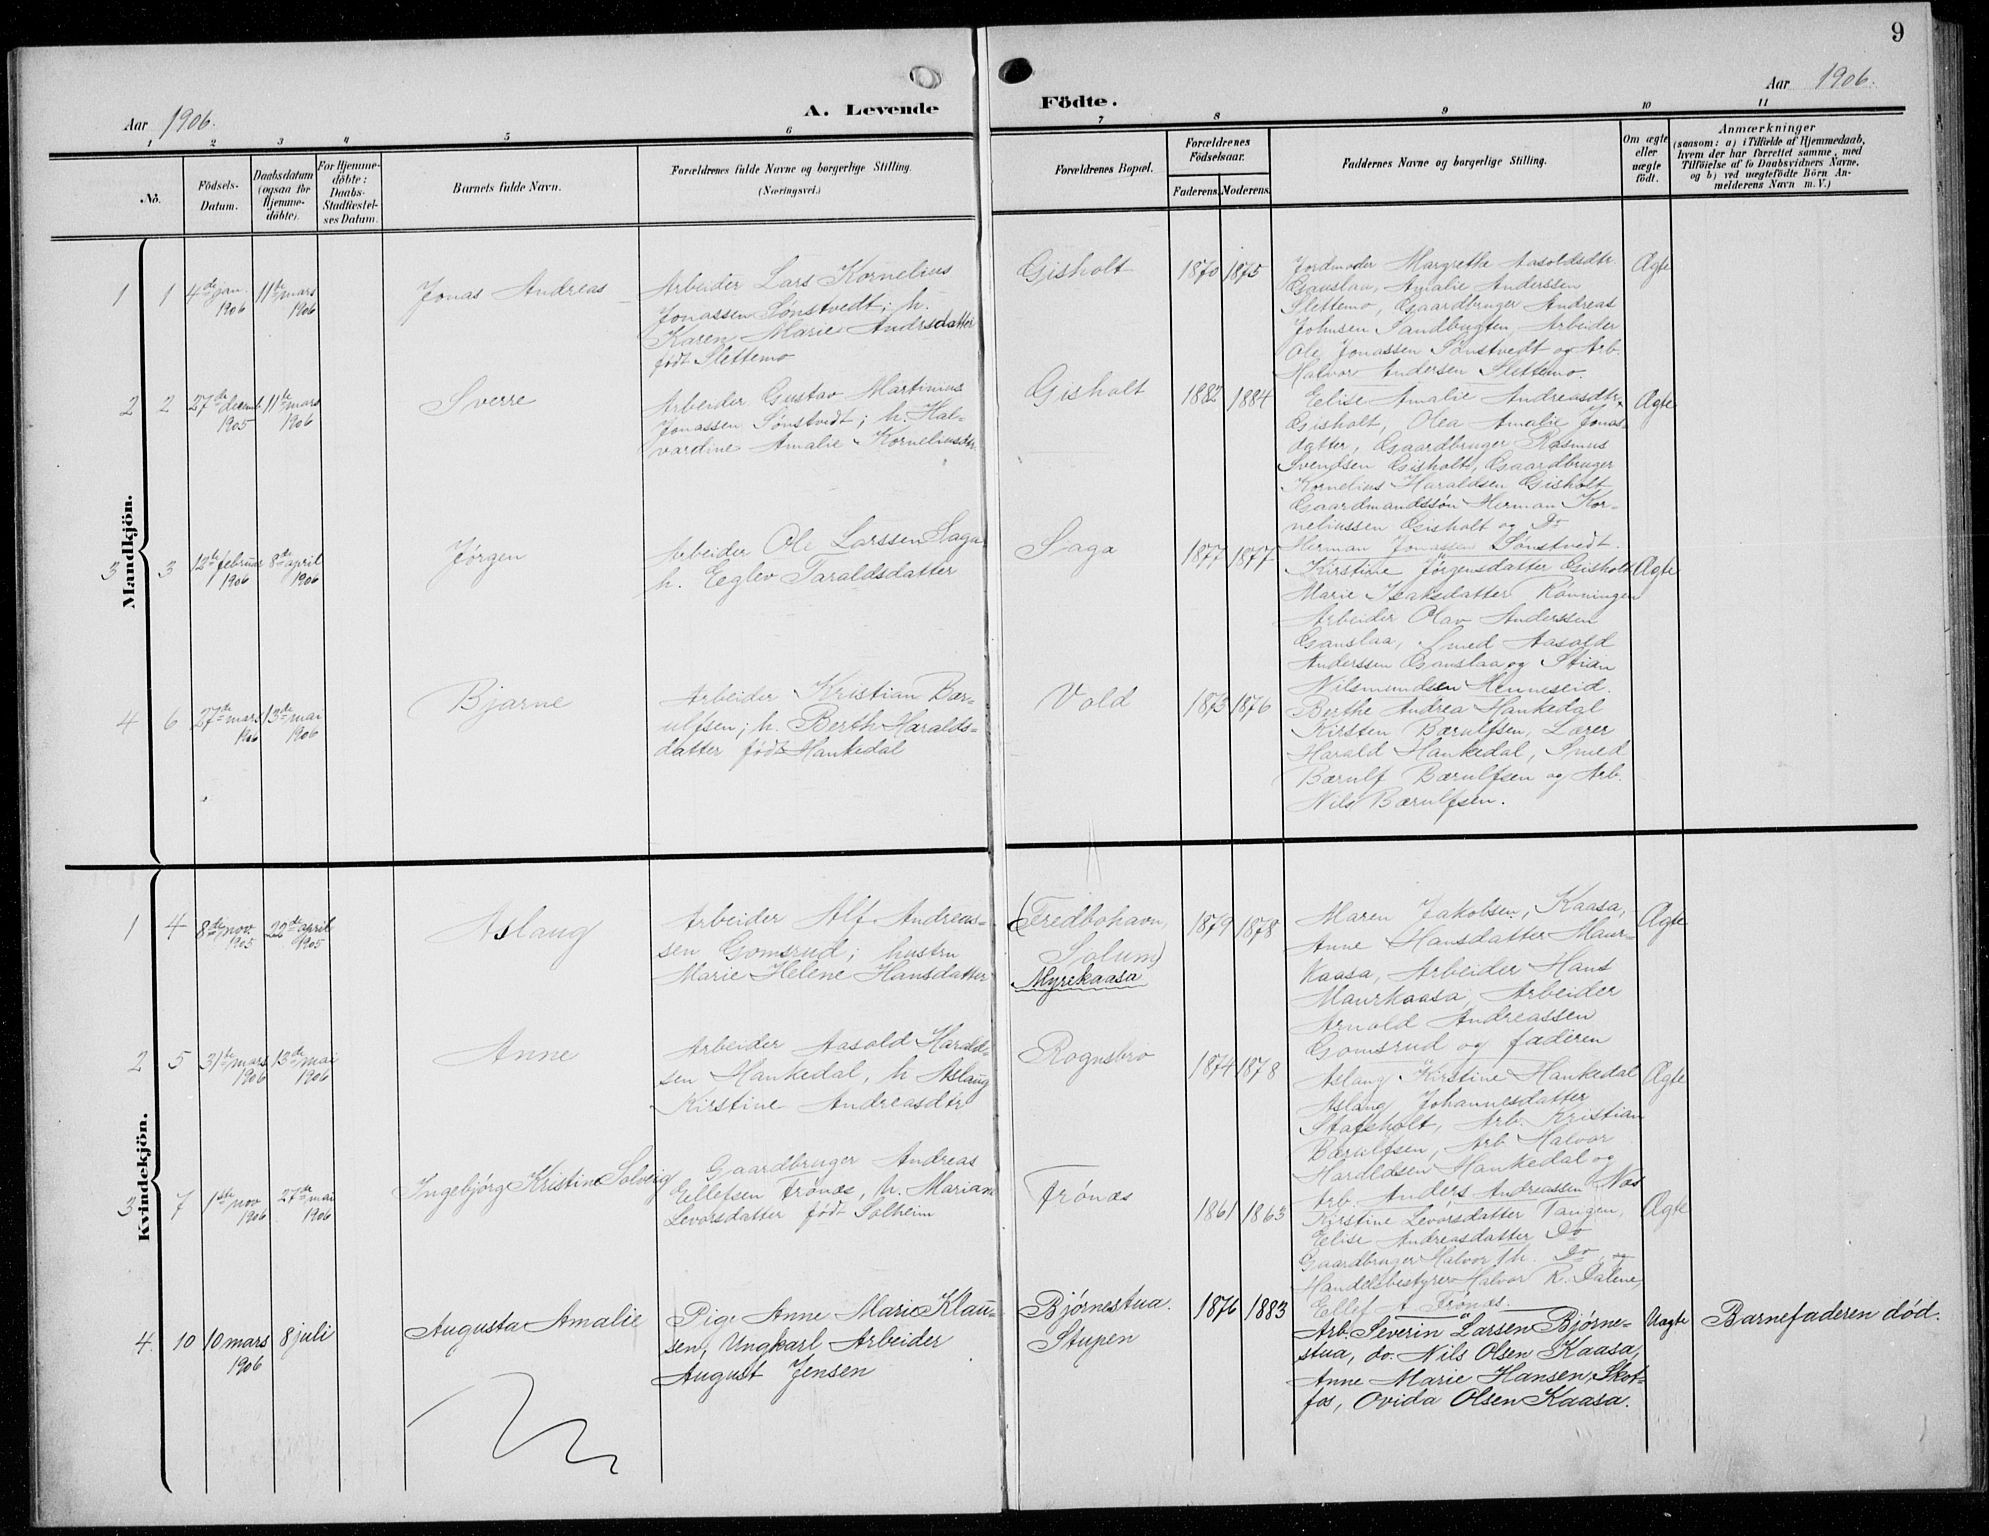 9
Aar 1906.
A. Levende
Födte.
Aar 1906.
1 2 3 4 5 6 7 8 9 10 11
No.
Födsels-
Datum.
Daabsdatum
(ogsaa for
Hjemme-
döbte).
For Hjemme-
döbte:
Daabs-
Stadfæstel-
ses Datum.
Barnets fulde Navn.
Forældrenes fulde Navne og borgerlige Stilling.
(Næringsvei.)
Forældrenes Bopæl.
Forældrenes
Födselsaar.
Faderens.
Moderens.
Faddernes Navne og borgerlige Stilling.
Om ægte
eller
uægte
födt.
Anmærkninger
(saasom: a) i Tilfælde af Hjemmedaab,
hvem der har forrettet samme, med
Tilföielse af to Daabsvidners Navne,
og b) ved uægtefödte Börn An-
melderens Navn m. V.)
Mandkjön.
1 1 4de jan. 1906
11te mars 1906
Jonas Andreas
Arbeider Lars Kornelius
Jonassen Sønstvedt; h.
Karen Marie Andrsdatter
født Slettemo
Gisholt
1870 1875
Jordmoder Margrethe Aasoldsdtr.
Gauslaa, Amalie Anderssen
Slettemo, Gaardbruger Andreas
Johnsen Sandbugten, Arbeider
Ole Jonassen Sønstvedt og Arb.
Halvor Andersen Slettemo.
Ægte
2 2 27de decemb. 1905
11te mars 1906
Sverre
Arbeider Gustav Martinius
Jonassen Sønstvedt; h. Hal-
vardine Amalie Korneliusdtr.
Gisholt
1882 1884
Eelise Amalie Andreasdtr.
Gisholt, Olea Amalie Jonas-
datter, Gaardbruger Rasmus
Svendsen Gisholt, Gaardbruger
Kornelius Haraldsen Gisholt
Gaardmandssøn Herman Kor-
neliussen Gisholt og Do
Herman Jonassen Sønstvedt.
Ægte
3 3 12te februar 1906
8de april 1906
Jørgen
Arbeider Ole Larssen Saga
h. Eeglev Taraldsdatter
Saga
1877 1877
Kirstine Jörgensdatter Gisholt
Marie Isaksdatter Rønningen
Arbeider Olav Anderssen
Gauslaa, Smed Aasold
Anderssen Gauslaa og Stian
Nilsmundsen Henneseid.
Ægte
4 6 27de mars 1906
13de mai 1906
Bjarne
Arbeider Kristian Bær-
ulfsen; h. Berth Haralds-
datter født Hankedal
Vold
1873 1876
Berthe Andrea Hankedal
Kirsten Bærulfsen, Lærer
Harald Hankedal, Smed
Bærulf Bærulfsen og Arb.
Nils Bærulfsen.
Kvindekjön.
1 4 8de nov. 1905
22de april 1905
Aslaug
Arbeider Alf Andreas-
sen Gomsrud; hustru
Marie Helene Hansdatter
(Fredbohavn,
Solum)
Myrekaasa
1879 1878
Maren Jakobsen, Kaasa,
Anne Hansdatter Maur-
kaasa, Arbeider Hans
Maurkaasa, Arbeider
Arnold Andreassen
Gomsrud og faderen
Ægte
2 5 31te mars 1906
13de mai 1906
Anne
Arbeider Aasold Harald-
sen Hankedal, h Aslaug
Kirstine Andreasdtr
Rognsbro
1874 1878
Aslaug Kirstine Hankedal
Aslaug Johannesdatter
Stafsholt, Arb. Kristian
Bærulfsen, Arb Halvor
Haraldsen Hankedal og
Arb. Anders Andreassen Næs
Ægte
3 7 1ste nov 1906
27de mai 1906
Ingebjørg Kristine Solveig
Gaardbruger Andreas
Eellefsen Frönæs, h. Mariane
Levorsdatter født Solheim
Frönæs
1861 1863
Kirstine Levorsdatter Tangen,
Eelise Andreasdatter Do
Gaardbruger Halvor Th. Do, og
Handelsbestyrer Halvor R. Dalene,
Eellef A Frönæs.
Ægte
4. 10 10 mars 1906
8 juli
Augusta Amalie
Pige Anne Marie Klau-
sen, Ungkarl Arbeider
August Jensen
Bjørnestua.
Stupen
1876 1883
Arb. Severin Larsen Bjørne-
stua, do. Nils Olsen Kaasa,
Anne Marie Hansen, Skot-
fos, Ovida Olsen Kaasa.
Uægte
Barnefaderen död.